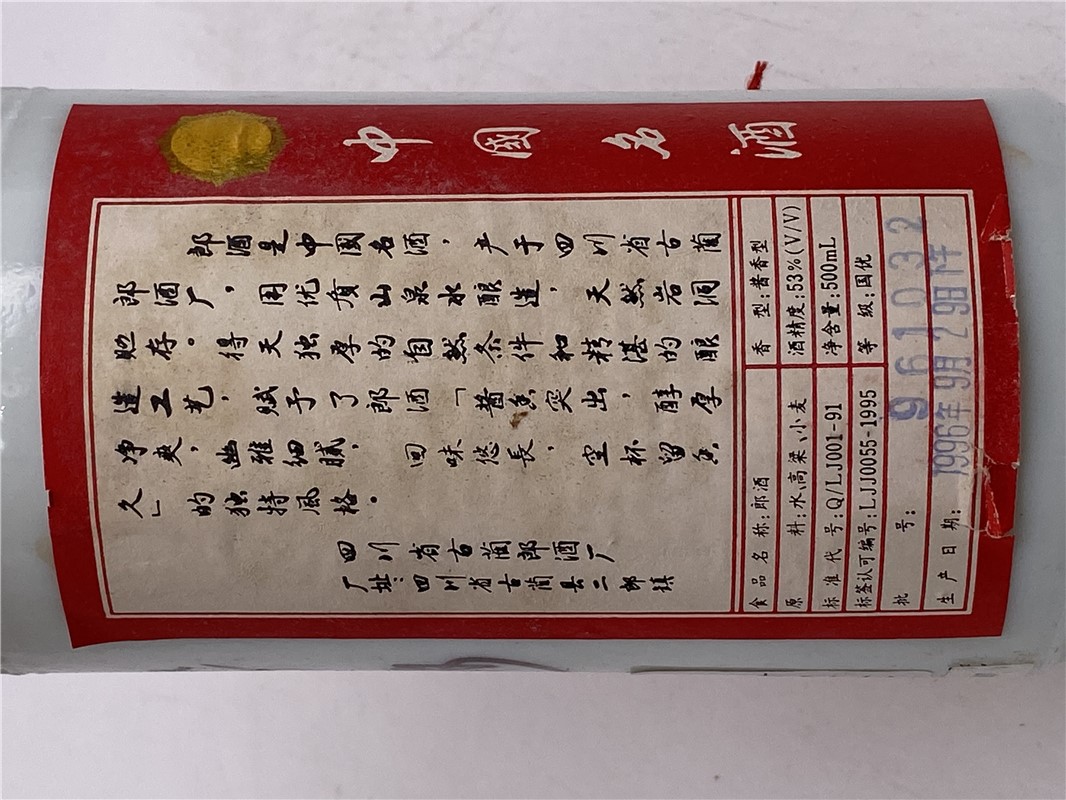 中國名酒
郎酒是中國名酒，产于四川省古蔺
郎酒厂，用优质山泉水酿造，天然岩洞
贮存。得天独厚的自然条件和精湛的酿
造工艺，赋予了郎酒「酱香突出，醇厚
净爽，幽雅细腻，回味悠長，空杯留香
久」的独特風格。
四川省古蔺郎酒厂
厂址：四川省古蔺县二郎镇
食品名称:郎酒 香型:酱香型
原料:水、高粱、小麦 酒精度:53%(V/V)
标准代号:Q/LJ001-91 净含量:500mL
标签认可编号:LJJ0055-1995 等级:国优
批号: 961032
生产日期: 1996年9月29日